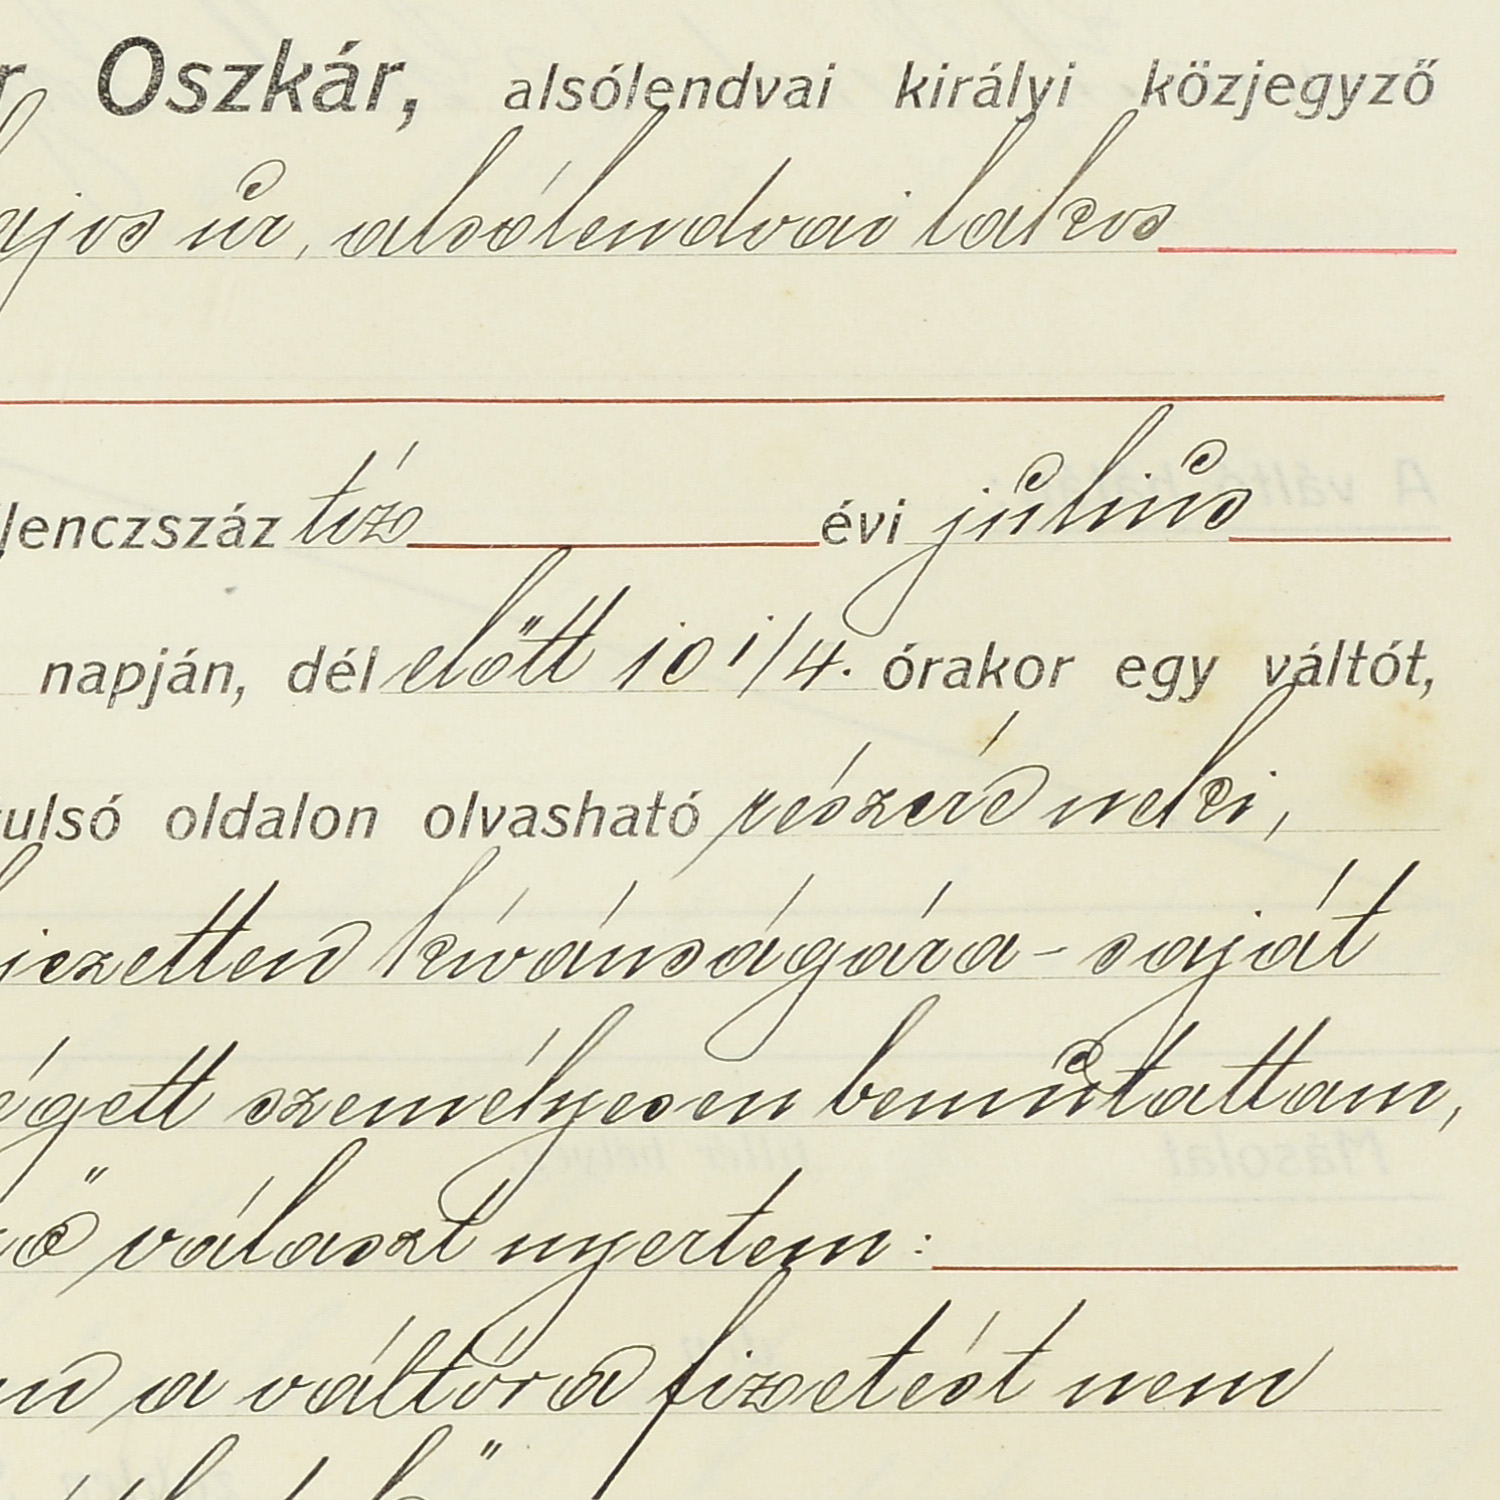 r Oszkár, alsólendvai királyi közjegyző
ajos úr, alsólendvai lakos
lenczszáz tíz évi július
napján, dél előtt 10 1/4. órakor egy váltót,
ulsó oldalon olvasható részéről neki,
jezetten kívánságára - saját
égett személyesen bemutattam,
ő választ nyertem:
a váltóra fizetést nem